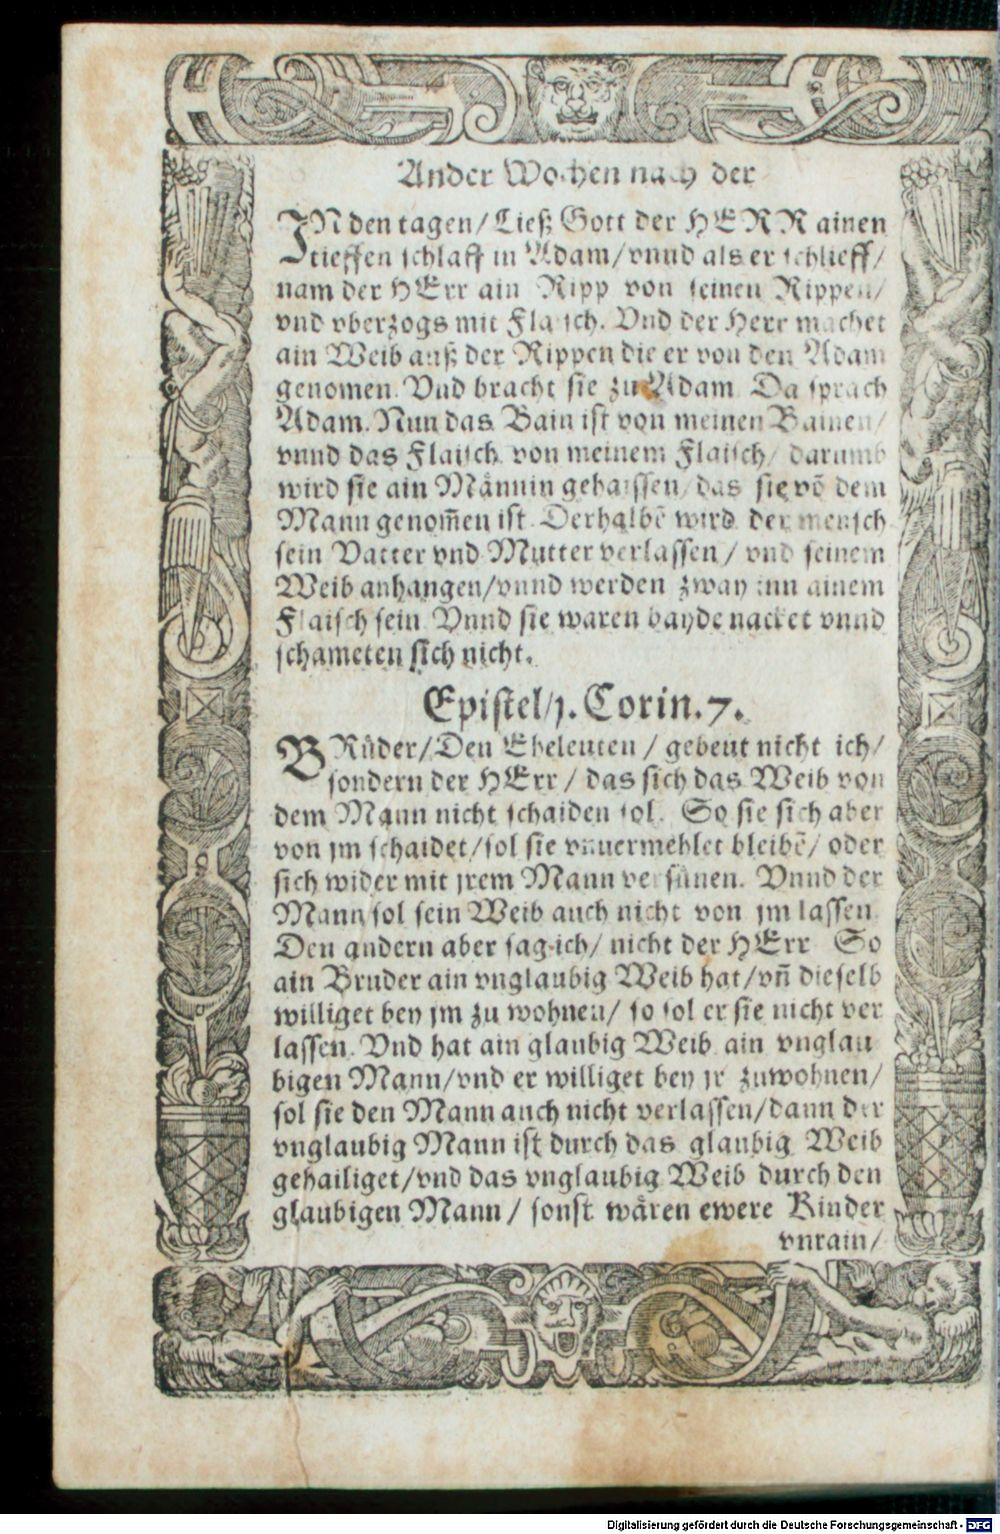 Ander Wochen nach der
IN den tagen/ Ließ Gott der HERR ainen
tieffen schlaff in Adam/ vnnd als er schlieff/
nam der HErr ain Ripp von seinen Rippen/
vnd vberzogs mit Flaisch. Vnd der Herr machet
ain Weib auß der Rippen die er von den Adam
genomen. Vnd bracht sie zu Adam. Da sprach
Adam. Nun das Bain ist von meinen Bainen/
vnnd das Flaisch von meinem Flaisch/ darumb
wird sie ain Männin gehaissen/ das sie võ dem
Mann genom̃en ist. Derhalbẽ wird der mensch
sein Vatter vnd Mutter verlassen/ vnd seinem
Weib anhangen/ vnnd werden zway inn ainem
Flaisch sein. Vnnd sie waren bayde nacket vnnd
schameten sich nicht.
Epistel/ j. Corin. 7.
BRüder/ Den Eheleuten / gebeut nicht ich/
sondern der HErr / das sich das Weib von
dem Mann nicht schaiden sol. So sie sich aber
von jm schaidet/ sol sie vnuermehlet bleibẽ/ oder
sich wider mit jrem Mann versünen. Vnnd der
Mann sol sein Weib auch nicht von jm lassen.
Den andern aber sag ich/ nicht der HErr So
ain Bruder ain vnglaubig Weib hat/ vñ dieselb
williget bey jm zu wohnen/ so sol er sie nicht ver
lassen. Vnd hat ain glaubig Weib ain vnglau
bigen Mann/ vnd er williget bey jr zuwohnen/
sol sie den Mann auch nicht verlassen/ dann der
vnglaubig Mann ist durch das glaubig Weib
gehailiget/ vnd das vnglaubig Weib durch den
glaubigen Mann / sonst wären ewere Kinder
vnrain/
Digitalisierung gefördert durch die Deutsche Forschungsgemeinschaft - DFG